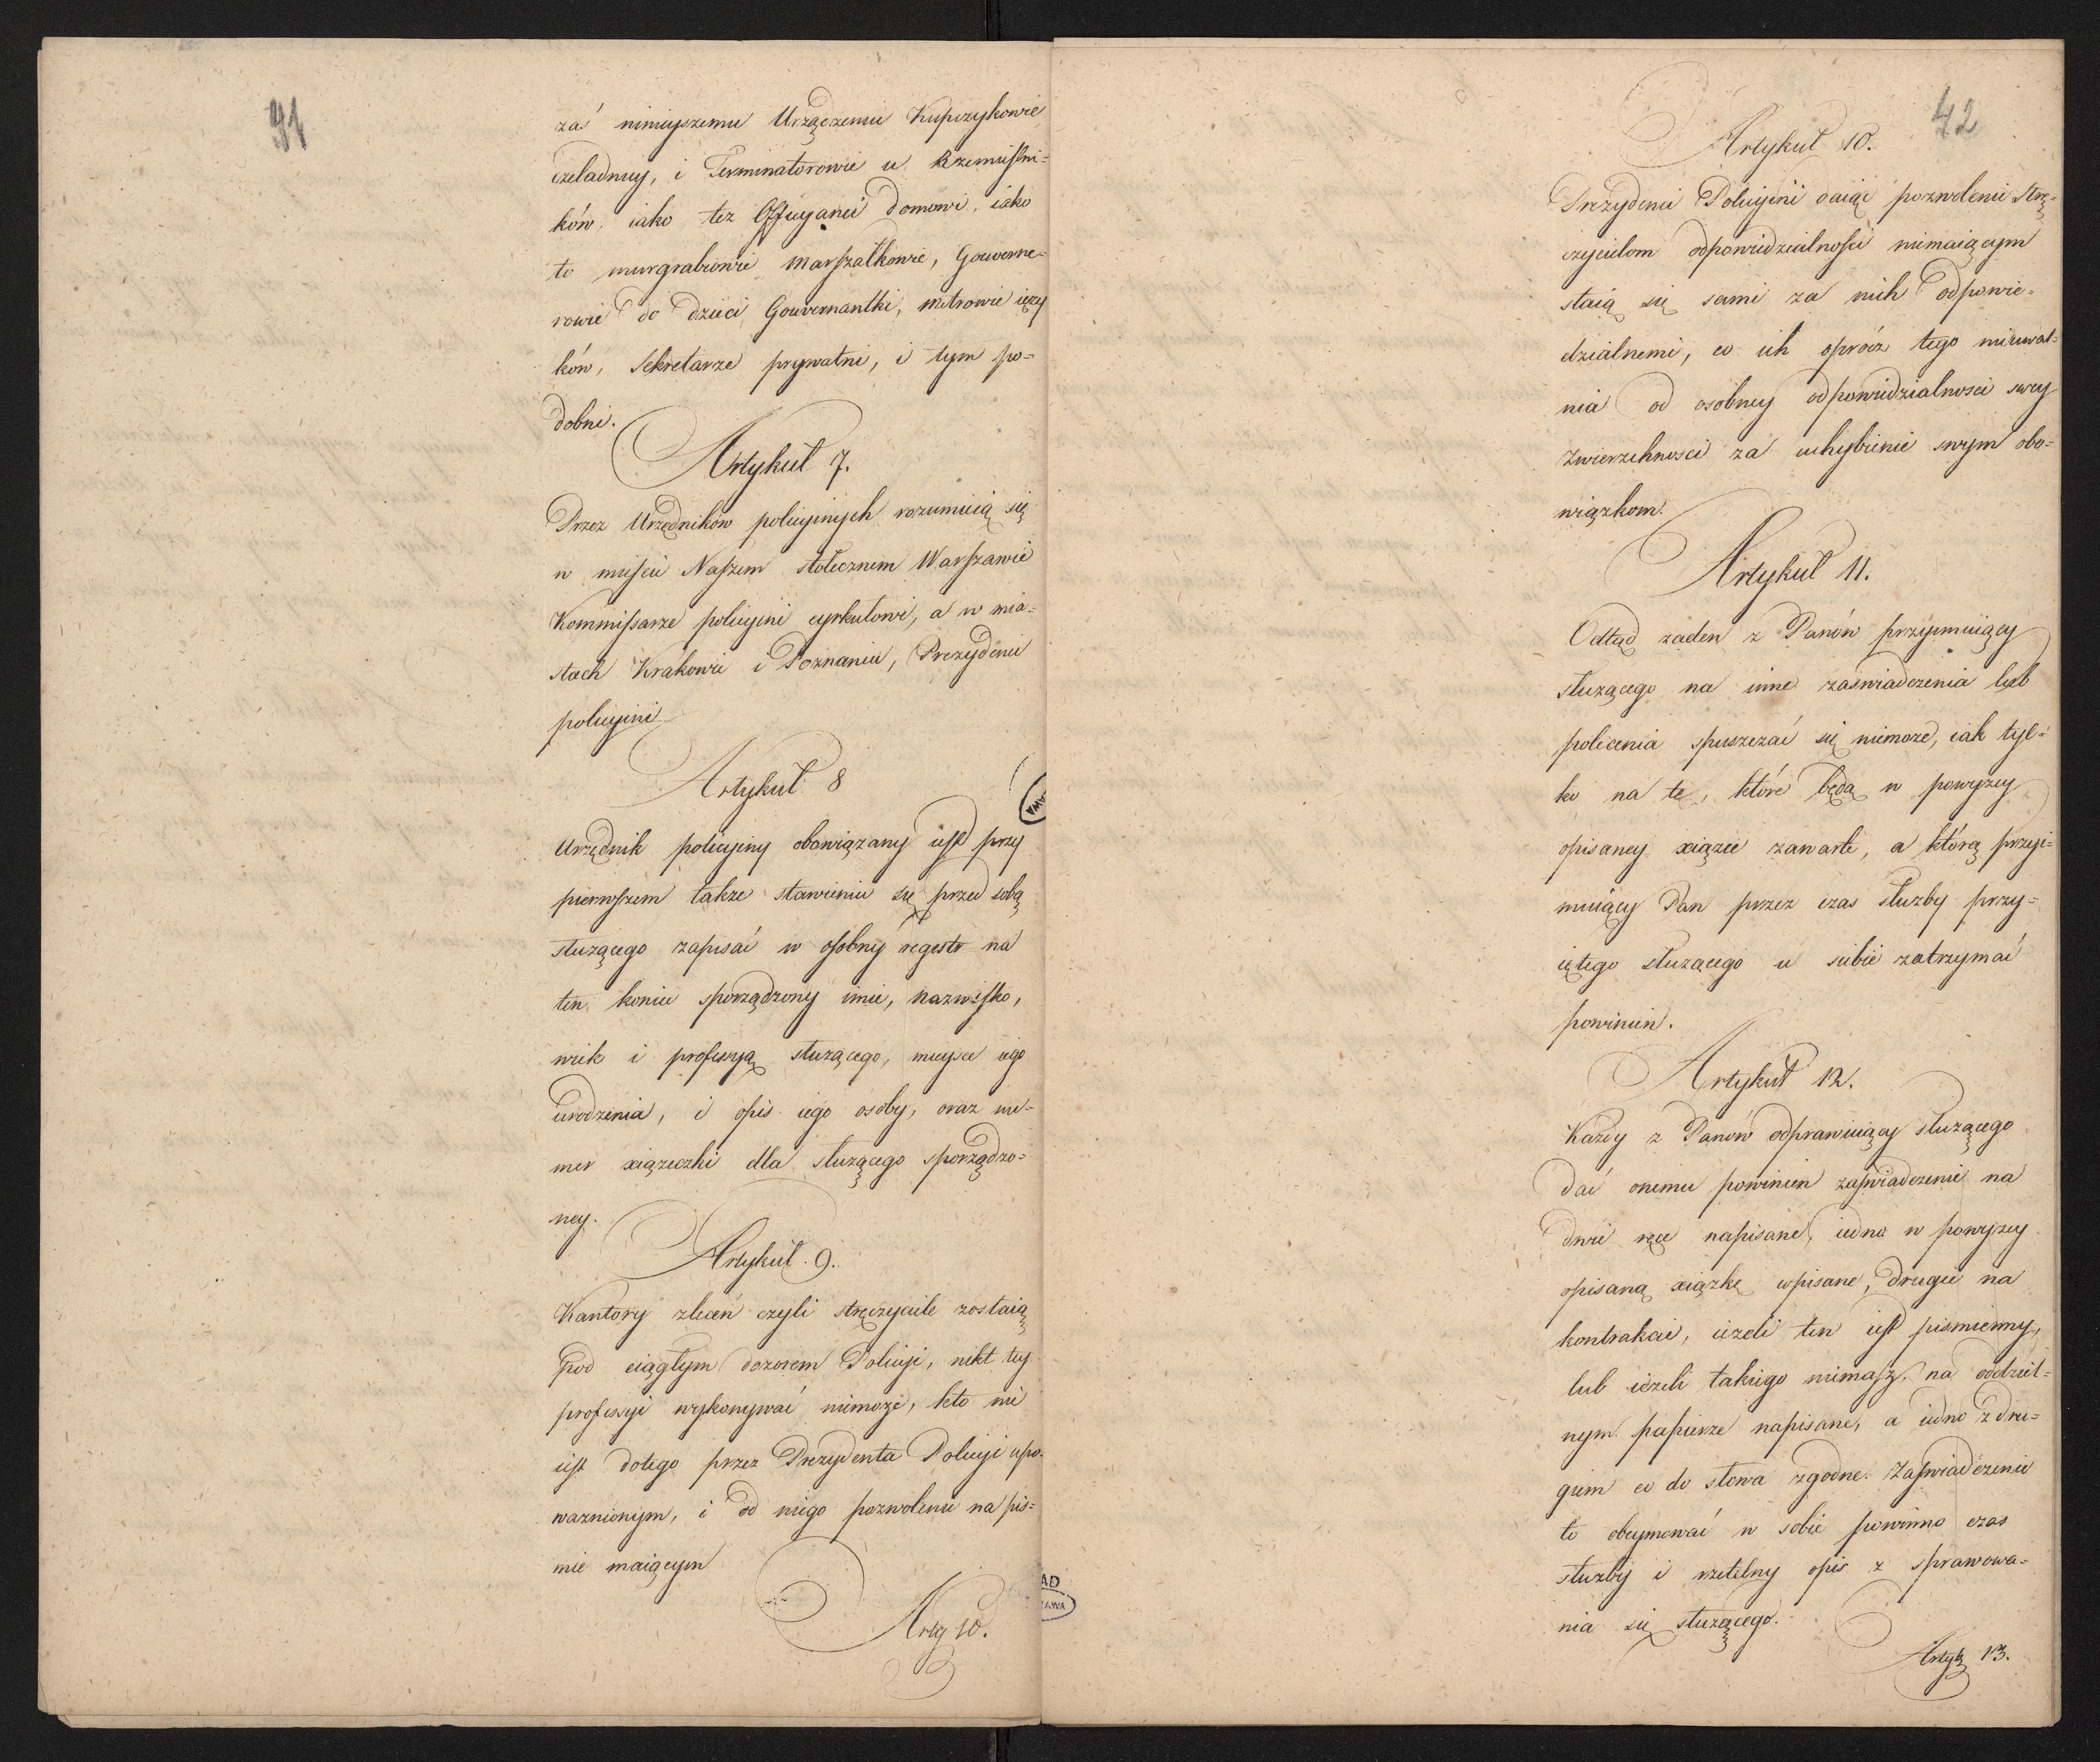 91
zaś ninieyszemu Urządzeniu Kupczykowie
czeladnicy, i Terminatorowie u Rzemieślni=
ków, iako też Officyanci Domowi, iako
to murgrabiowie Marszałkowie, Gouverne=
rowie do dzieci Gouvernantki, metrowie ięzy
ków, Sekretarze prywatni, i tym po=
dobni.
Artykuł 7.
Przez Urzędników policyinych rozumieią się
w mieście Naszem stołecznem Warszawie
Kommissarze policyini cyrkułowi, a w mia=
stach Krakowie i Poznaniu, Prezydenci
policyini
Artykuł 8
Urzędnik policyiny obowiązany iest przy
pierwszem także stawieniu się przed sobą
służącego zapisać w osobny regestr na
ten koniec sporządzony imie, nazwisko,
wiek i professyą służącego, mieysce iego
urodzenia, i opis iego osoby, oraz nu=
mer xiążeczki dla służącego sporządzo=
ney.
Artykuł 9.
Kantory zleceń czyli stręczyciele zostaią
pod ciągłym dozorem Policyi, nikt tey
professyi wykonywać niemoże, kto nie
iest dotego przez Prezydenta Policyi upo=
ważnionym, i od niego pozwolenie na piś=
mie maiącym
Arty 10.
42
Artykuł 10.
Prezydenci Policyini daiąc pozwolenie Strę=
czycielom odpowiedzialności niemaiącym
staią się sami za nich odpowie=
dzialnemi, co ich oprócz tego nieuwal=
nia od osobney odpowiedzialności swey
Zwierzchności za uchybienie swym obo=
wiązkom.
Artykuł 11.
Odtąd żaden z Panów przyimuiący
służącego na inne zaświadczenia lub
polecenia spuszczać się niemoże, iak tyl=
ko na te, które będą w powyższey
opisaney xiążce zawarte, a którą przyi=
muiący Pan przez czas służby przy=
iętego służącego u siebie zatrzymać
powinien.
Artykuł 12.
Każdy z Panów odprawuiący służącego
dać onemu powinien zaświadczenie na
dwie ręce napisane, iedno w powyższey
opisaną xiążkę wpisane, drugie na
kontrakcie, ieżeli ten iest piśmienny,
lub ieżeli takiego niemasz, na oddziel=
nym papierze napisane, a iedno z dru=
giem co do słowa zgodne. Zaświadczenie
to obeymować w sobie powinno czas
służby i rzetelny opis z sprawowa=
nia się służącego.
Artyk 13.